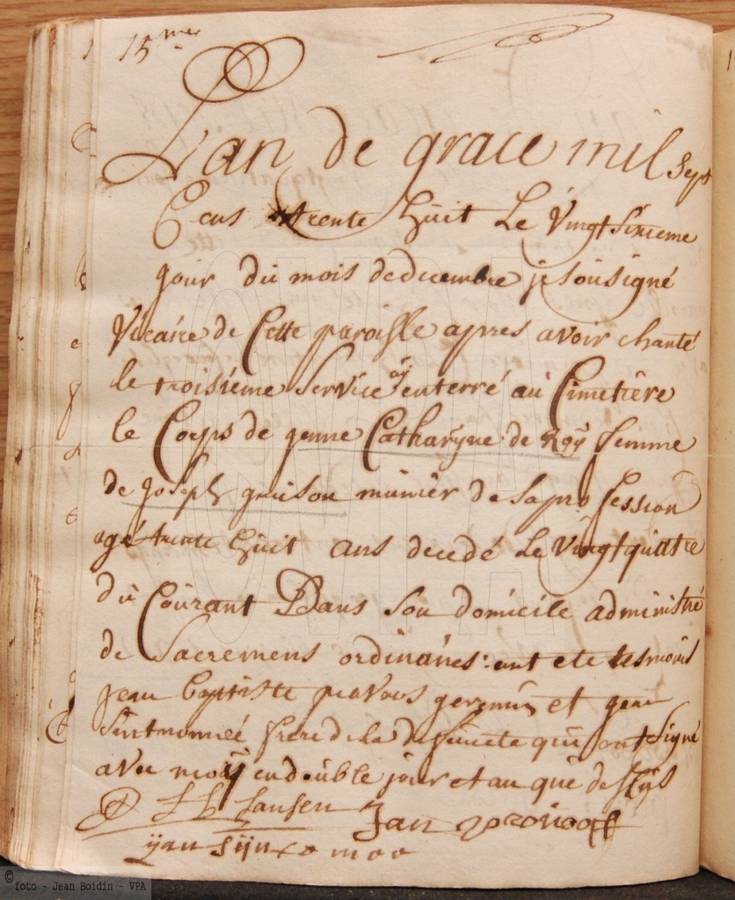 15me
Lan de grace mil sept
Cens trente huit Le Vingt sixieme
jour du mois de decembre je sousigné
Vicaire de Cette paroisse apres avoir chanté
le troisieme Service enterré au Cimetiere
le Corps de jenne Catharyne de Roÿ femme
de joseph guison munier de sa pro fession
agé trente huit ans decedé Le Vingt quattre
du Courant Dans son domicile administré
de Sacremens ordinaires: ont eté tesmoins
jean baptiste et jean
frere de la defuncte qui ont signé
avec moÿ en double jour et an que dessus
Jansen Jan provoost
ijan
© foto - Jean Boidin - VPA